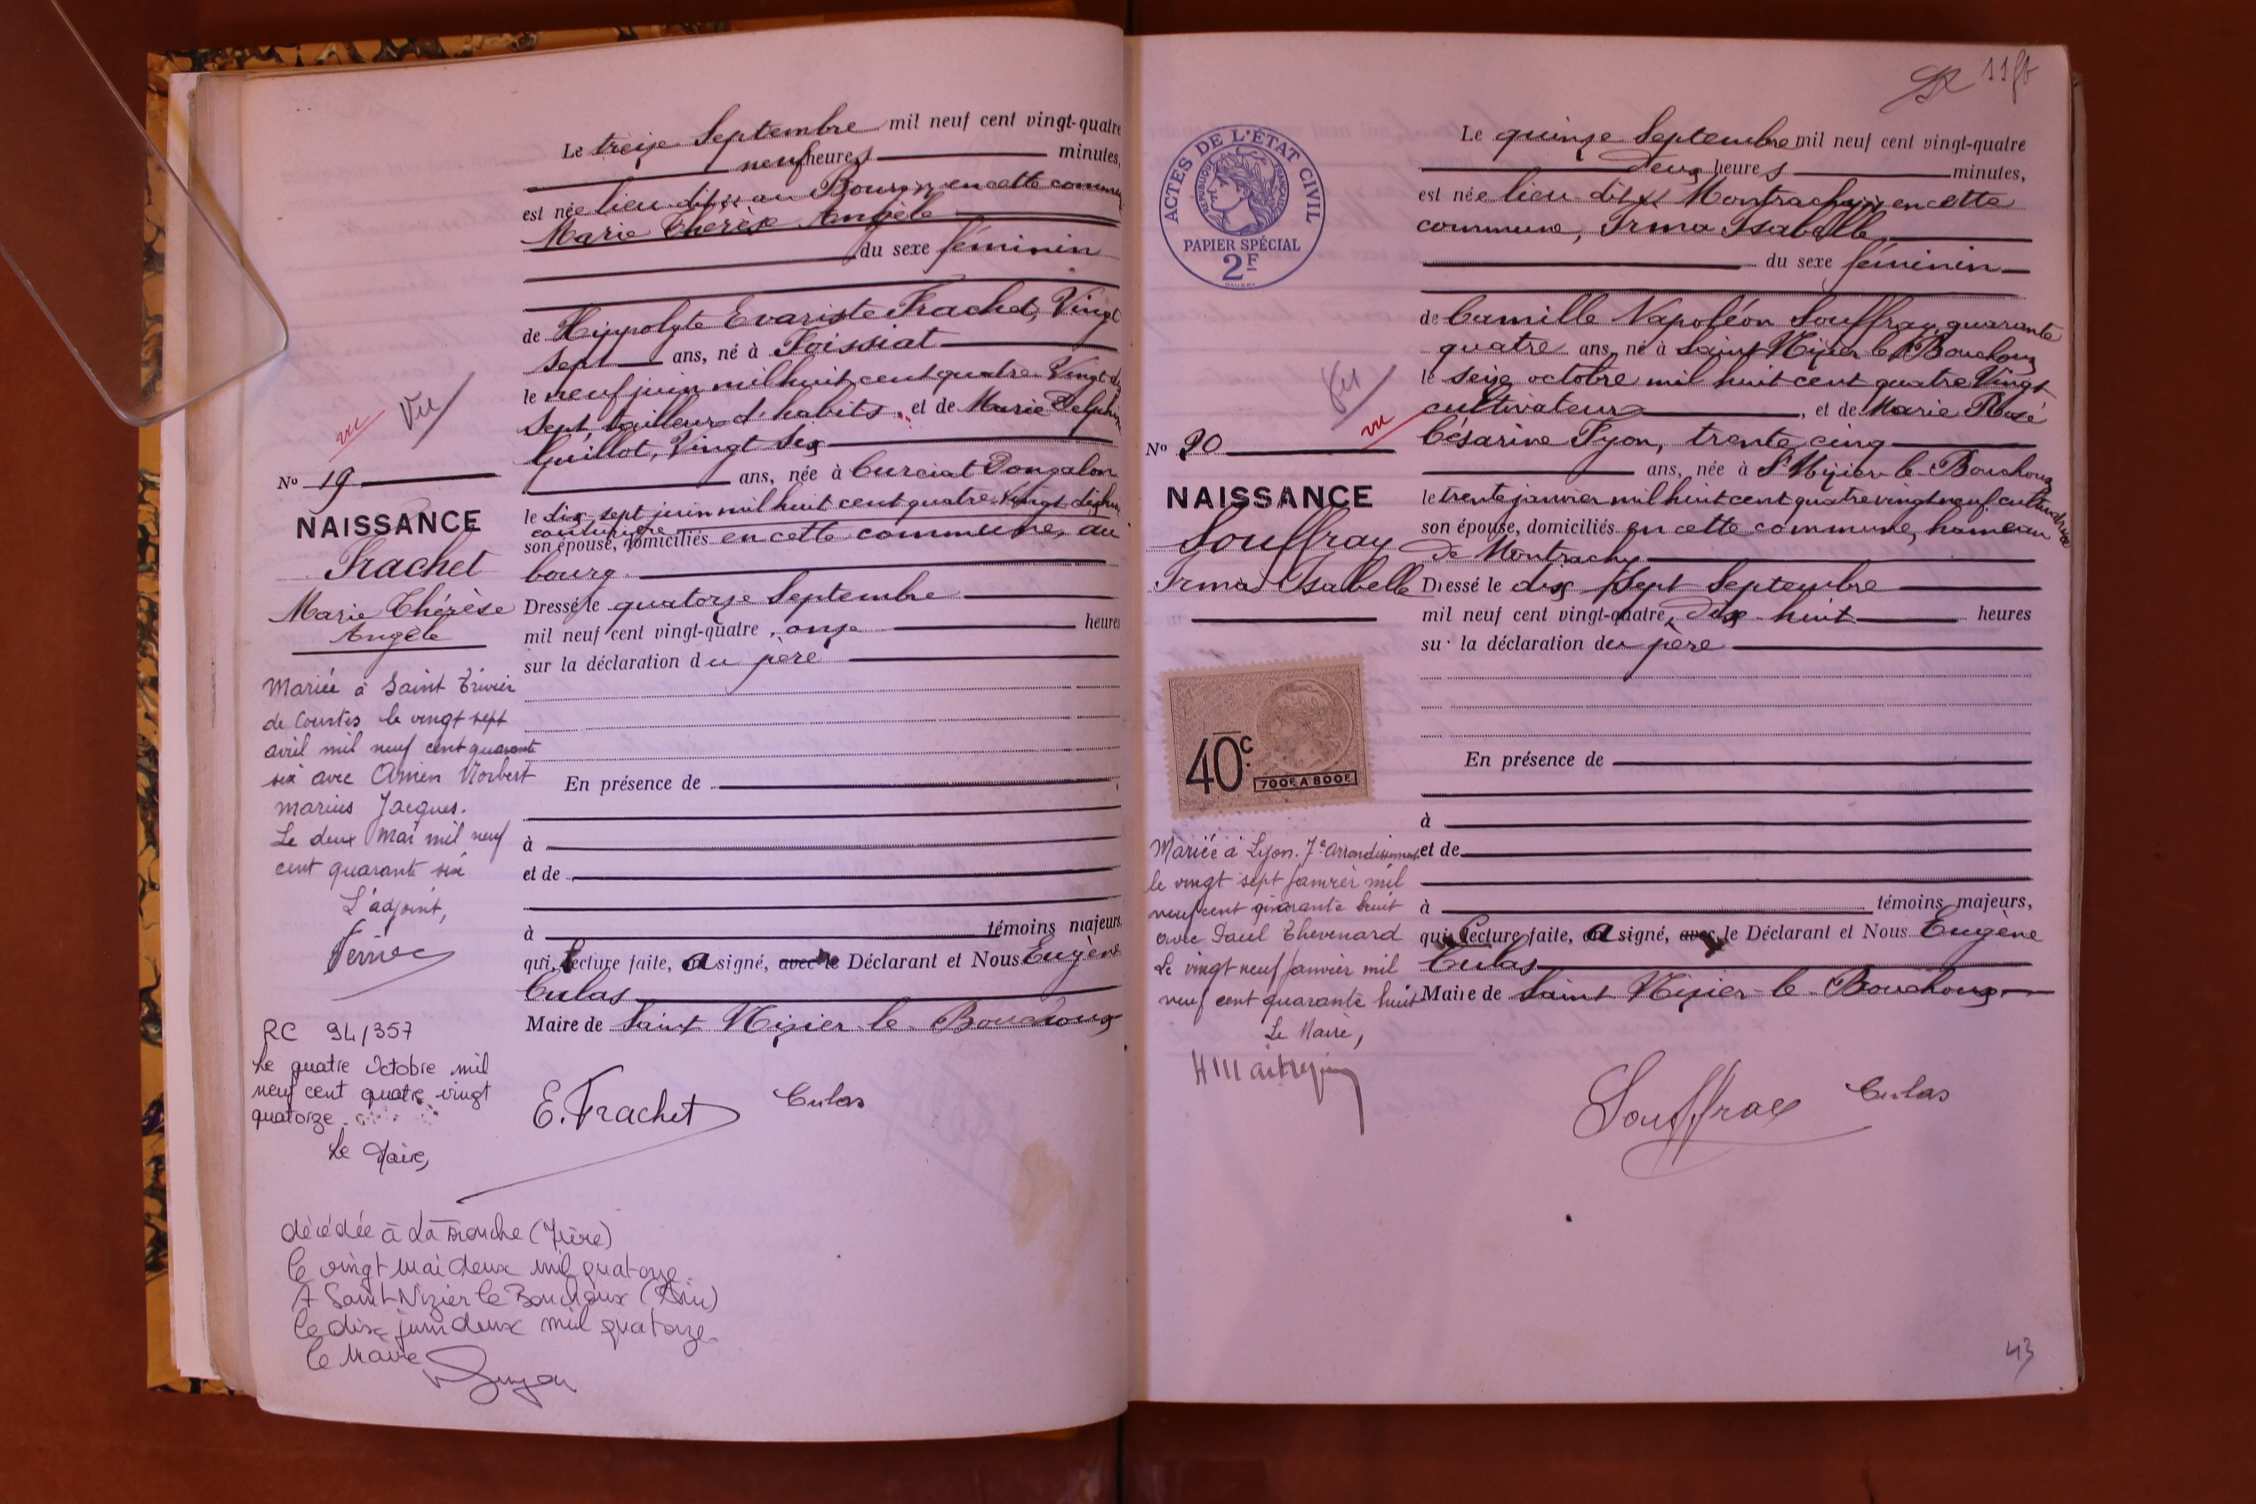 Le treize Septembre mil neuf cent vingt-quatre
neuf heures minutes,
est née lieu dit au Bourg en cette commune
Marie Thérèse Angèle
du sexe féminin
de Hippolyte Evariste Frachet, Vingt
sept ans, né à Foissiat
le neuf juin mil huit cent quatre Vingt dix
sept, tailleur d'habits, et de Marie Delphine
Guillot, Vingt six
ans, née à Curciat Dongalon
le dix sept juin mil huit cent quatre Vingt dix huit
couturière
son épouse, domiciliés en cette commune, au
bourg
Dressé le quatorze Septembre
mil neuf cent vingt-quatre, onze heures
sur la déclaration du père
En présence de
à
et de
à témoins majeurs,
qui, Lecture faite, a signé, avec le Déclarant et Nous Eugène
Culas
Maire de Saint Nizier le Bouchoux
E. Frachet Culas
vu Vu
No 19
NAISSANCE
Frachet
Marie Thérèse
Angèle
Mariée à Saint Trivier
de Courtes le vingt sept
avril mil neuf cent quarante
six avec Amien Norbert
Marius Jacques.
Le deux Mai mil neuf
cent quarante six
L'adjoint,
RC 94/357
Le quatre Octobre mil
neuf cent quatre vingt
quatorze.
Le Maire,
décédée à La Tronche (Isère)
le vingt mai deux mil quatorze
A Saint Nizier le Bouchoux (Ain)
le dix juin deux mil quatorze
le Maire
118b
ACTES DE L'ÉTAT CIVIL
RÉPUBLIQUE FRANÇAISE
PAPIER SPÉCIAL
2F
Le quinze Septembre mil neuf cent vingt-quatre
deux heures minutes,
est née lieu dit Montrachy, en cette
commune, Irma Isabelle
du sexe féminin
de Camille Napoléon Souffray, quarante
quatre ans, né à Saint Nizier le Bouchoux
le seize octobre mil huit cent quatre Vingt
cultivateur, et de Marie Rose
Césarine Fyon, trente cinq
ans, née à St Nizier le Bouchoux
le trente janvier mil huit cent quatre vingt neuf, cultivatrice
son épouse, domiciliés en cette commune, hameau
de Montrachy
Dressé le dix sept Septembre
mil neuf cent vingt-quatre, dix huit heures
sur la déclaration du père
En présence de
à
et de
à témoins majeurs,
qui, Lecture faite, a signé, avec le Déclarant et Nous Eugène
Culas
Maire de Saint Nizier le Bouchoux
Souffray Culas
Vu vu
No 20
NAISSANCE
Souffray
Irma Isabelle
40c
700F A 800F
Mariée à Lyon. 7e arrondissement
le vingt sept janvier mil
neuf cent quarante huit
avec Paul Thevenard
Le vingt neuf janvier mil
neuf cent quarante huit
Le Maire,
43